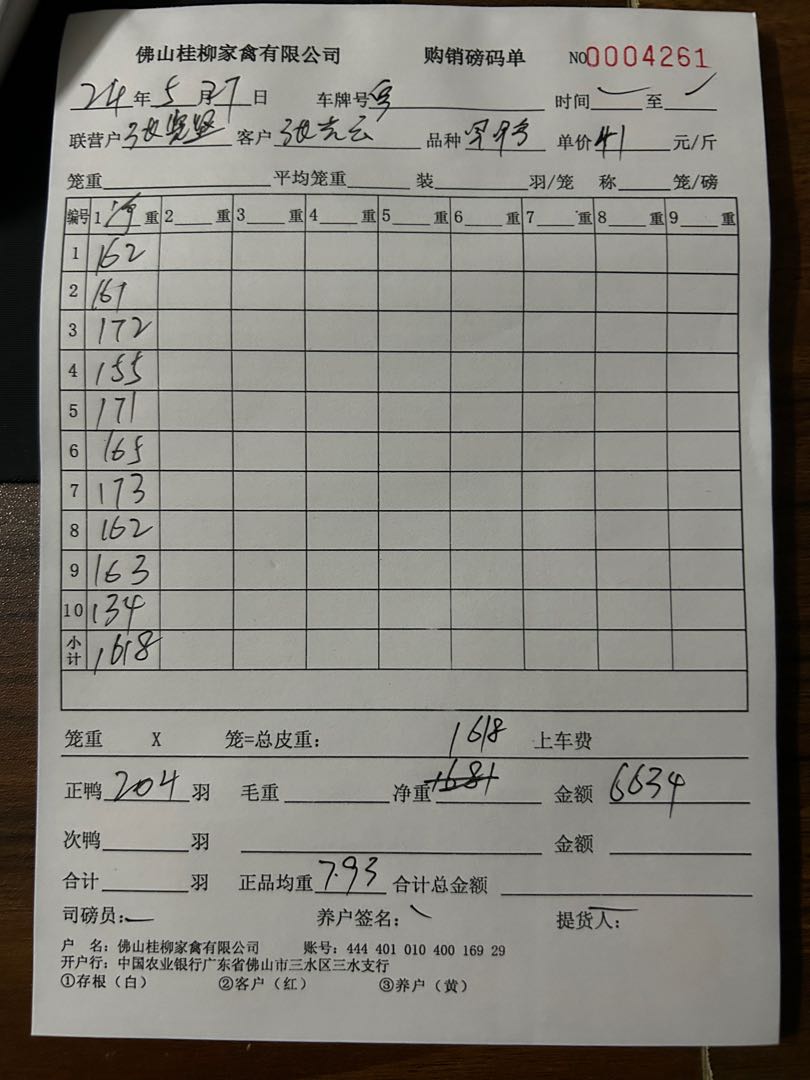 佛山桂柳家禽有限公司 购销磅码单 NO0004261
24年5月27日 车牌号 时间 至
联营户 客户 张 云 品种 单价41元/斤
笼重 平均笼重 装 羽/笼 称 笼/磅
编号 1 净 重 2 重 3 重 4 重 5 重 6 重 7 重 8 重 9 重
1 162
2 161
3 172
4 155
5 171
6 165
7 173
8 162
9 163
10 134
小计 1618
笼重 X 笼=总皮重: 1618 上车费
正鸭 204 羽 毛重 净重 1681 金额 6634
次鸭 羽 金额
合计 羽 正品均重 7.93 合计总金额
司磅员: 养户签名: 提货人:
户 名: 佛山桂柳家禽有限公司 账号: 444 401 010 400 169 29
开户行: 中国农业银行广东省佛山市三水区三水支行
①存根(白) ②客户(红) ③养户(黄)